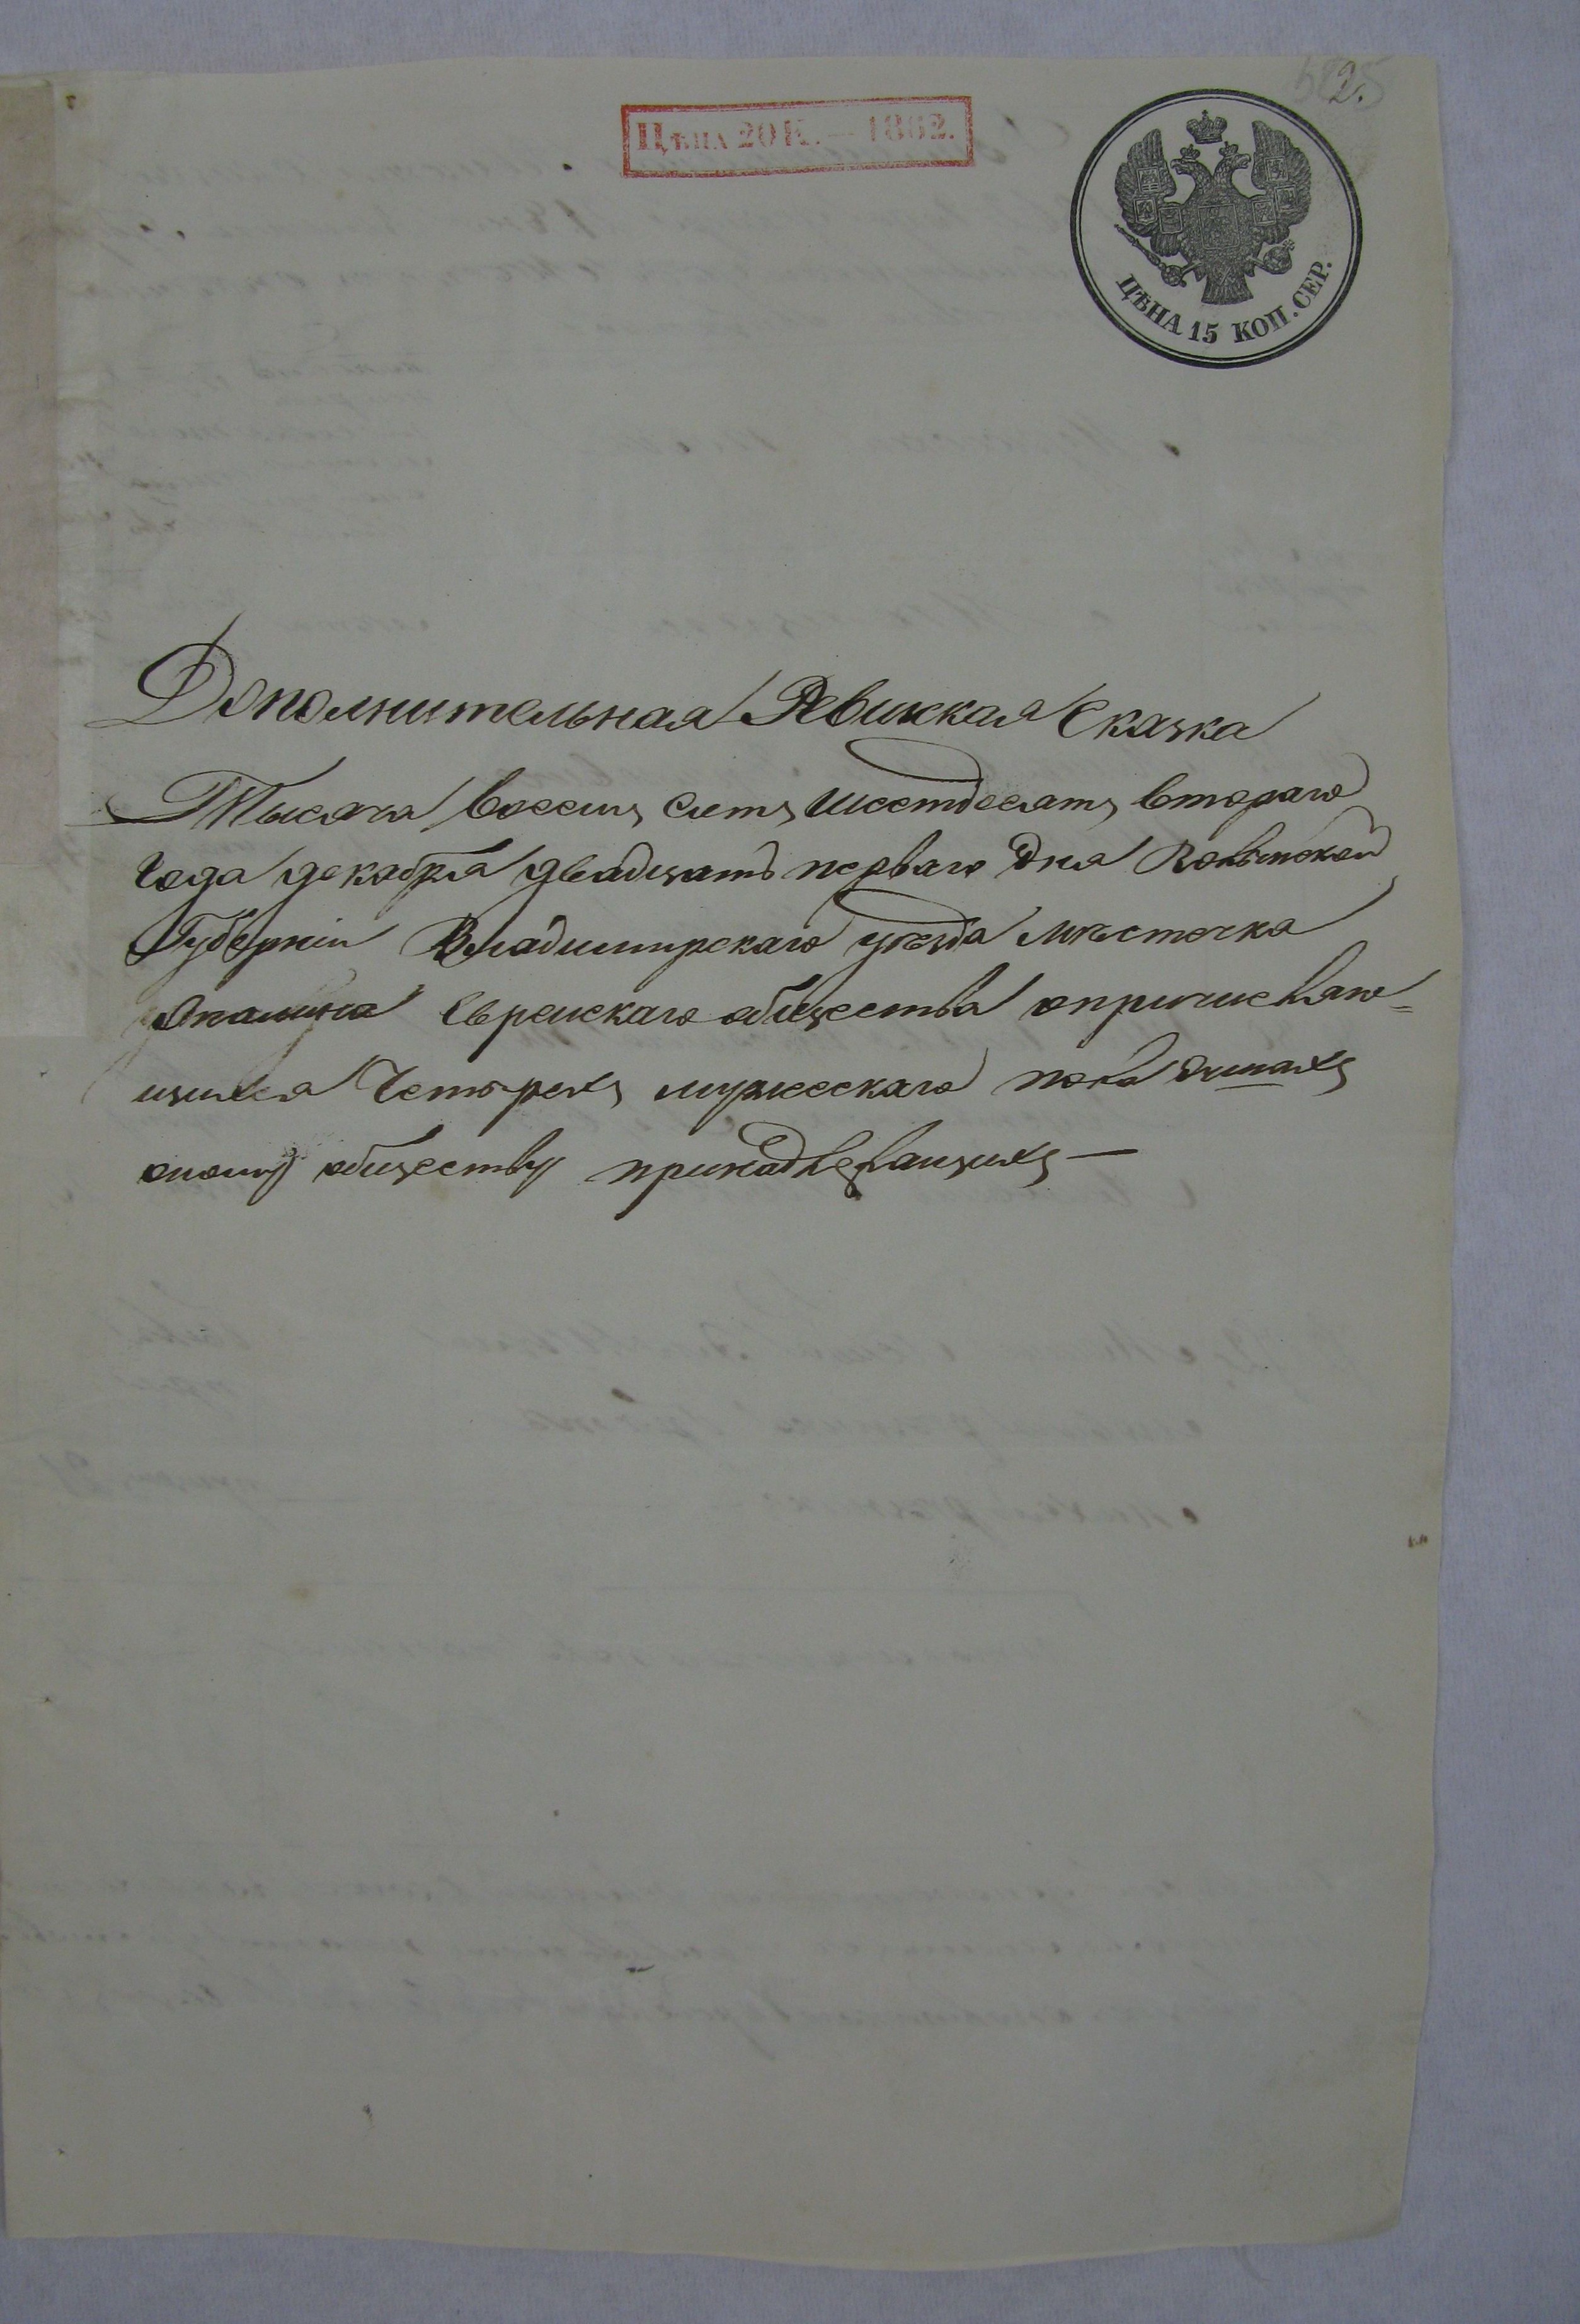 2.
Цѣна 20 К. — 1862.
ЦѢНА 15 КОП. СЕР.
Дополнительная Ревизская Сказка
Тысяча восемъ сотъ шестдесятъ втораго
Года декабря двадцать перваго дня Волынской
Губерніи Владимирскаго уѣзда мѣстечка
Опалина Еврейскаго общества опричисляю=
щихся Четырехъ мужескаго пола душахъ
оному обществу принадлежащихъ —